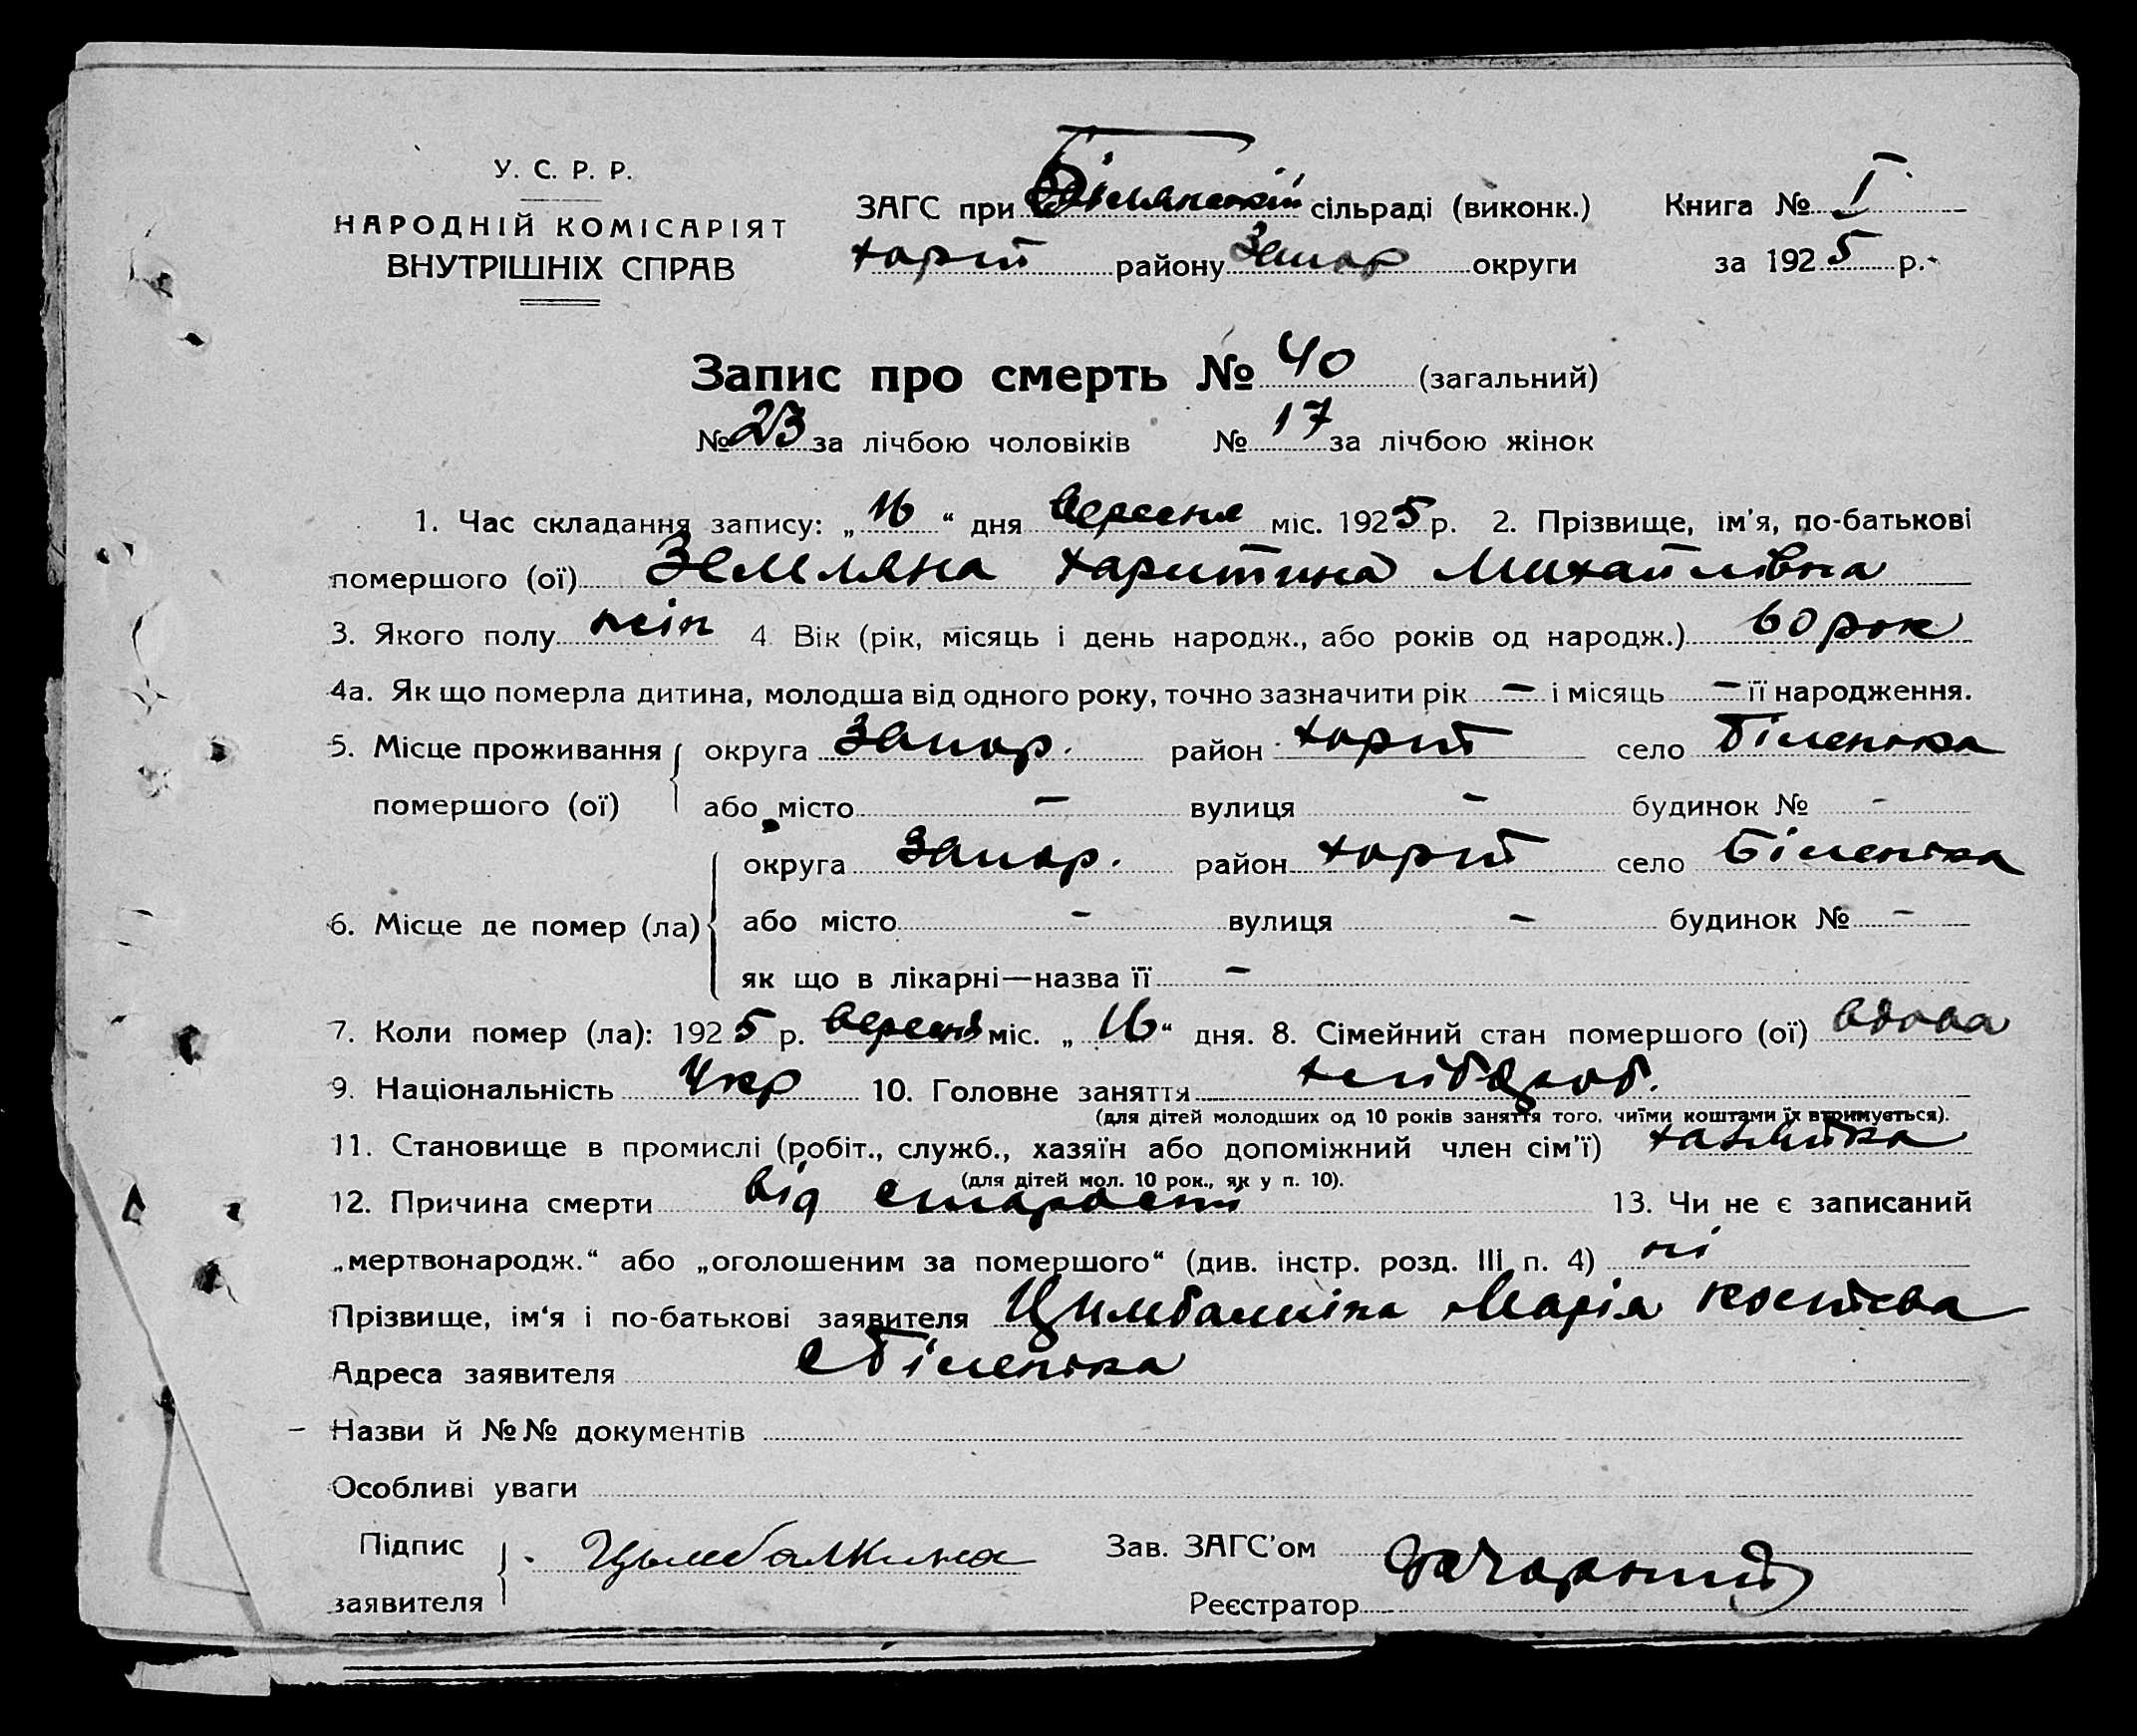 У. С. Р. Р.
НАРОДНІЙ КОМІСАРІЯТ
ВНУТРІШНІХ СПРАВ
ЗАГС при Біленській сільраді (виконк.) Книга № I
Хорт району Запор округи за 1925 р.
Запис про смерть № 40 (загальний)
№ 23 за лічбою чоловіків № 17 за лічбою жінок
1. Час складання запису: „16“ дня вересня міс. 1925 р. 2. Прізвище, ім'я, по-батькові
помершого (ої) Земляна Харитина Михайлівна
3. Якого полу жін 4. Вік (рік, місяць і день народж., або років од народж.) 60 рок
4а. Як що померла дитина, молодша від одного року, точно зазначити рік — і місяць — її народження.
5. Місце проживання округа Запор. район Хорт село Біленька
помершого (ої) або місто — вулиця — будинок № -
округа Запор. район Хорт село Біленька
6. Місце де помер (ла) або місто - вулиця - будинок № -
як що в лікарні—назва її -
7. Коли помер (ла): 1925 р. вересня міс. „16“ дня. 8. Сімейний стан помершого (ої) вдова
9. Національність Укр 10. Головне заняття хлібороб.
(для дітей молодших од 10 років заняття того, чиїми коштами їх втримується).
11. Становище в промислі (робіт., служб., хазяїн або допоміжний член сім'ї) хазяйка
(для дітей мол. 10 рок., як у п. 10).
12. Причина смерти від старости 13. Чи не є записаний
„мертвонародж.“ або „оголошеним за помершого“ (див. інстр. розд. III п. 4) ні
Прізвище, ім'я і по-батькові заявителя Цимбалкіна Марія Костєва
Адреса заявителя с Біленька
Назви й №№ документів
Особливі уваги
Підпис заявителя Цымбалкина Зав. ЗАГС'ом
Реєстратор